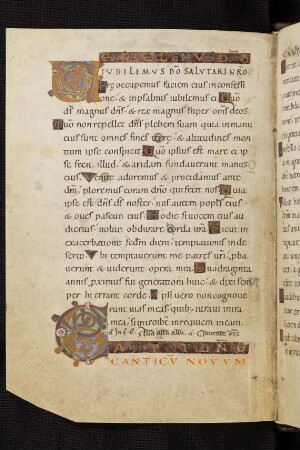 IUBILEMUS DÕ SALUTARI NRO
P̃occupemus faciem eius in confessi
one · & in psalmis iubilemus ei · Quo
ds̃ magnus dñs · & rex magnus super oms̃ deos
Quo non repellet dñs plebem suam quia in manu
eius sunt omnes fines terrę · & altitudines mon
tium ipse conspicit · Quo ipsius est mare et ip
se fecit illud · & aridam fundaverunt manus
eius · Venite adoremus & procidamus ante
dm̃ · ploremus coram dño qui fecit nos · Quia
ipse est dñs ds̃ noster · nos autem populus eius
& oves pascuę eius · Hodie si vocem eius au
dieritis · nolite obdurare corda ur̃a · Sicut in
exacerbatione secdm̃ diem temptationis in de
serto · Ubi temptaverunt me patres ur̃i · pba
verunt & viderunt opera mea · Quadraginta
annis proximus fui generationi huic · & dixi sem
per hi errant corde · Ipsi vero non cognove
runt vias meas quib; iuravi in ira
mea · si introibunt in requiem meam
CANTATE DNO
CANTICŨ NOVUM